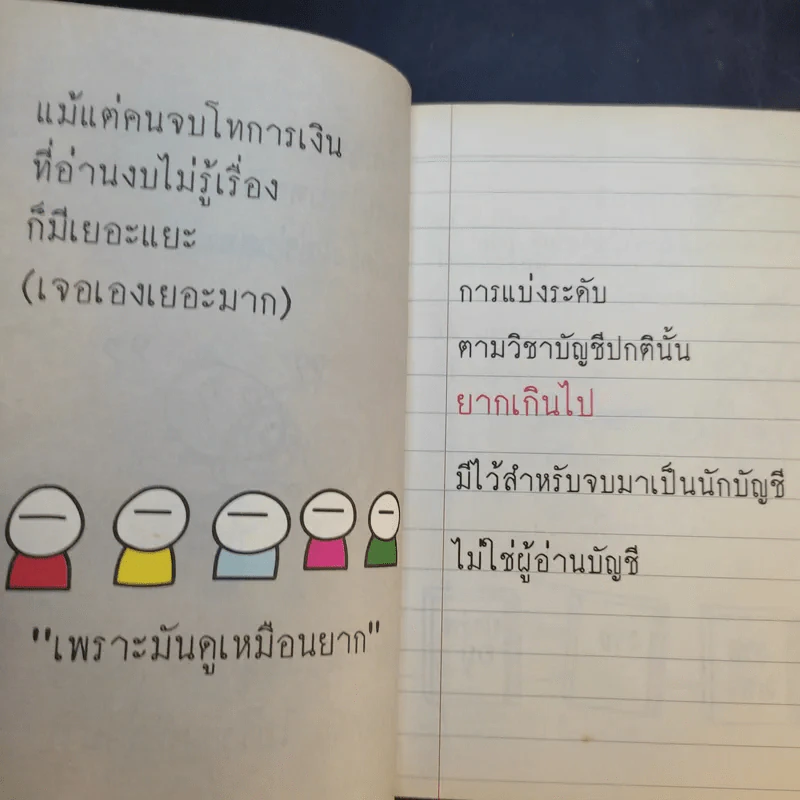 แม้แต่คนจบโทการเงิน
ที่อ่านงบไม่รู้เรื่อง
ก็มีเยอะแยะ
(เจอเองเยอะมาก)
"เพราะมันดูเหมือนยาก"
การแบ่งระดับ
ตามวิชาบัญชีปกตินั้น
ยากเกินไป
มีไว้สำหรับจบมาเป็นนักบัญชี
ไม่ใช่ผู้อ่านบัญชี